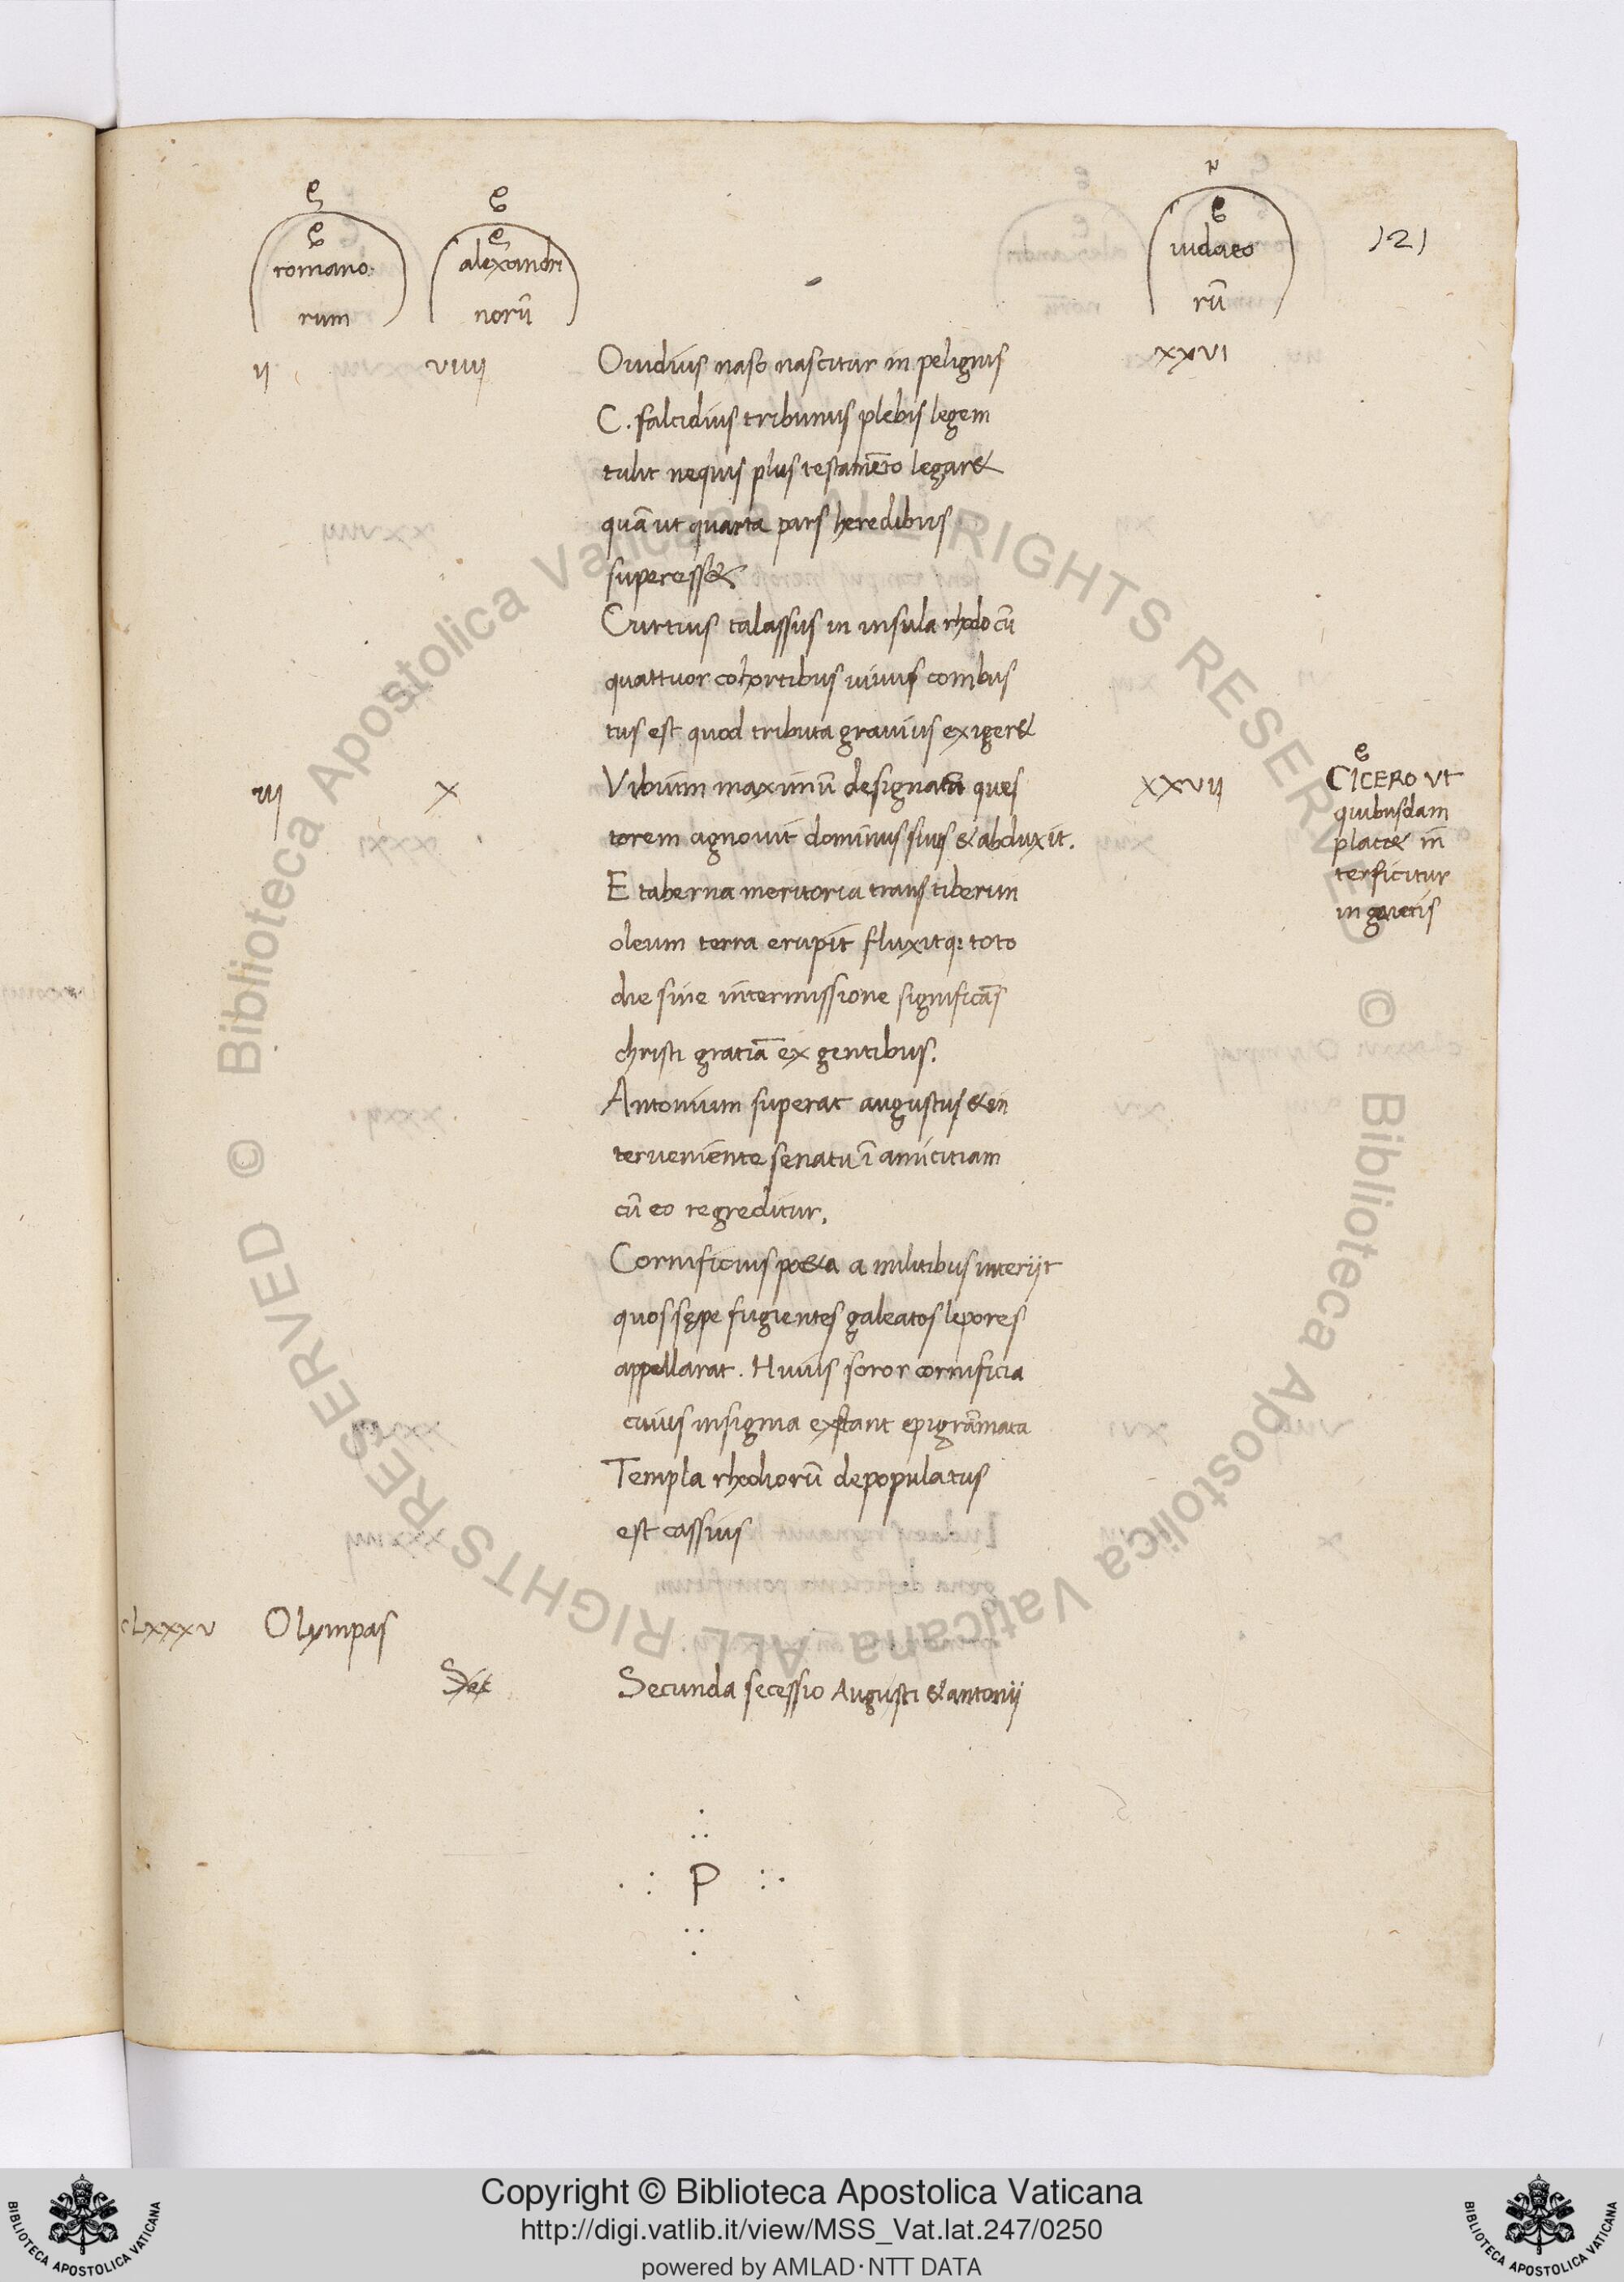 romano
rum
alexandri
norū
iudaeo
rū
121
ij
viiij
Ouidius naso nascitur in pelignis
xxvi
C. falcidius tribunus plebis legem
tulit nequis plus testamēto legar&
quā ut quarta pars heredibus
superess&
Curtius salassus in insula rhodo cū
quattuor cohortibus uiuus combus
tus est quod tributa grauius exiger&
iij
x
Vibium maximū designatū ques
xxvij
torem agnouit dominus suus & abduxit.
E taberna meritoria trans tiberim
oleum terra erupit fluxitq; toto
die sine intermissione significās
christi gratiā ex gentibus.
Antonium superat augustus & in
terueniente senatu ī amicitiam
cū eo regreditur.
Cornificius po&a a militibus interijt
quos sępe fugientes galeatos lepores
appellarat. Huius soror cornificia
cuius insignia extant epigrāmata
Templa rhodiorū depopulatus
est cassius
CICERO ut
quibusdam
plac& in
terficitur
in gaietis
cLxxxv Olympas
Secunda secessio Augusti & antonij
P
Copyright © Biblioteca Apostolica Vaticana
http://digi.vatlib.it/view/MSS_Vat.lat.247/0250
powered by AMLAD·NTT DATA
BIBLIOTECA APOSTOLICA VATICANA
BIBLIOTECA APOSTOLICA VATICANA
© Biblioteca Apostolica Vaticana ALL RIGHTS RESERVED
© Biblioteca Apostolica Vaticana ALL RIGHTS RESERVED